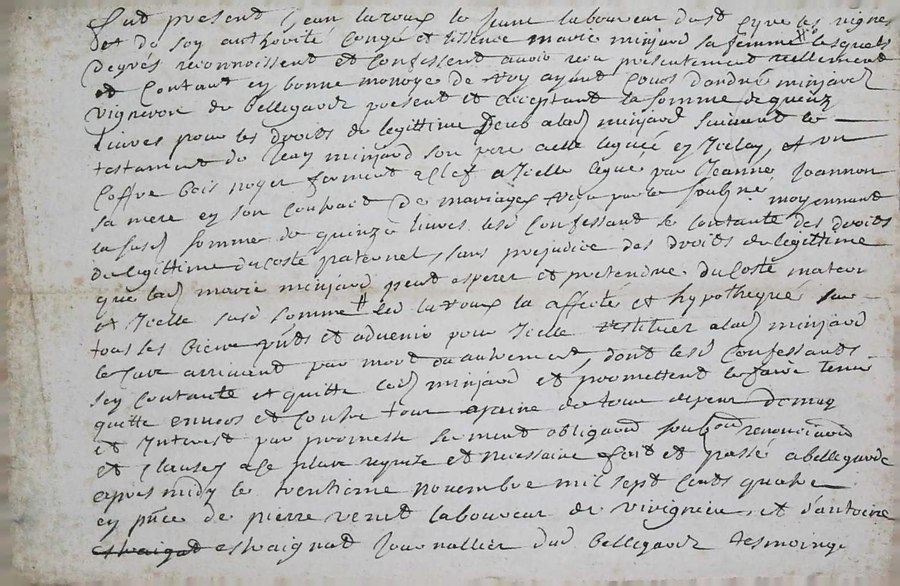 Fut present Jean laroux le Jeune laboureur dud Cyvecles vignes
et de son authorité congé et lissence marie minjard sa femme lesquels
de grés reconnoissent et confessent avoir receu presentement reellement
et contant en bonne monoye de roy ayant cours d'andré minjard
vigneron de bellegarde present et acceptant la somme de quinze
livres pour les droits de legittime deus a lad minjard suivant le
testament de Jean minjard son pere a elle leguée en Jceluy, et un
coffre bois noyer fermant a clef a Jcelle legué par Jeanne Joannon
sa mere en son contrait de mariage receu par le soubzné moyennant
la susd somme de quinze livres lesd confessant se contante des droits
de legittime du costé paternel, sans prejudice des droits de legittime
que lad marie minjard peut esperer et pretendre du costé mater
et Jcelle susd somme led laroux la affecté et hypothequé sur
tous ses biens pnts et advenir pour Jcelle restituer a lad minjard
le cas arrivant par mort ou autrement, dont lesd confessants
sen contante et quitte led minjard et promettent le faire tenir
quitte envers et contre tous a peine de tous depens domag
et Interest par promesse serment obligaon soubzon renonciaon
et clauses a ce plus requise et necessaire fait et passé a bellegarde
apres midy le trentieme novembre mil sept cents quatre
en pnce de pierre venet laboureur de vivigneu, et d'antoine
esvaignat Journallier dud bellegarde tesmoings